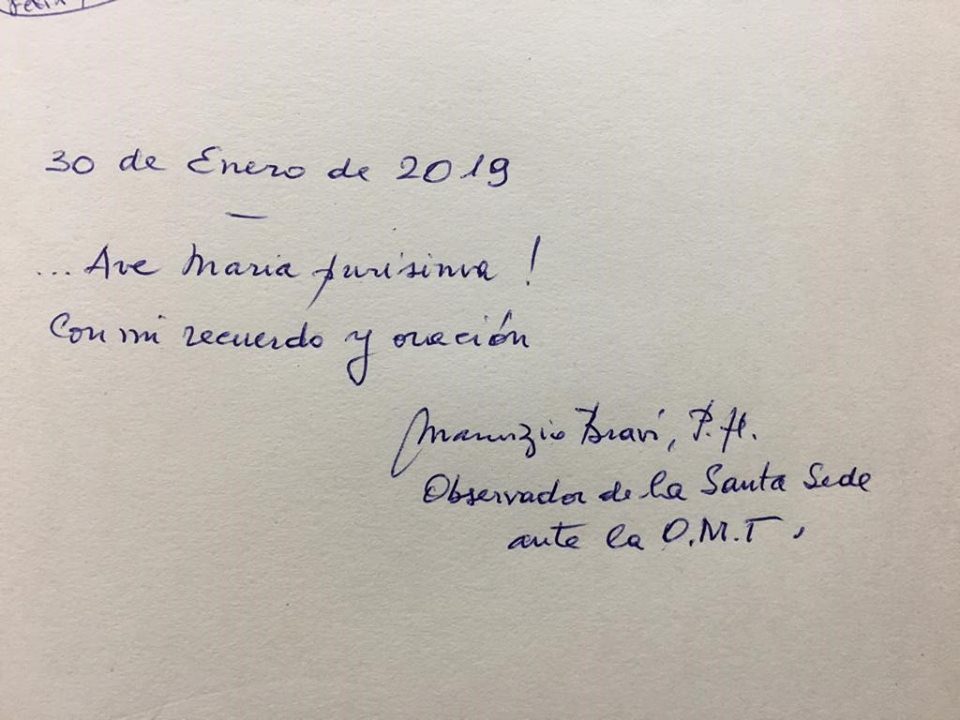 30 de Enero de 2019
... Ave Maria purisima !
Con mi recuerdo y oración
Maurizio Bravi, P.H.
Observador de la Santa Sede
ante la O.M.T.